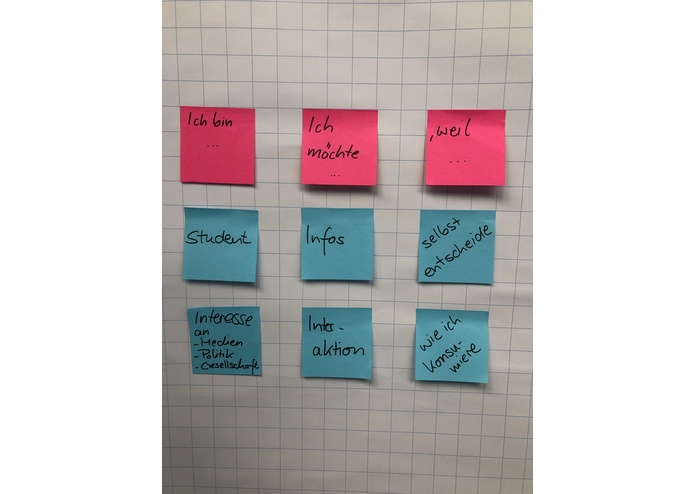 Ich bin
...
Ich
möchte
...
, weil
...
Student
Infos
selbst
entscheide
Interesse
an
- Medien
- Politik
- Gesellschaft
Inter-
aktion
wie ich
konsu-
miere